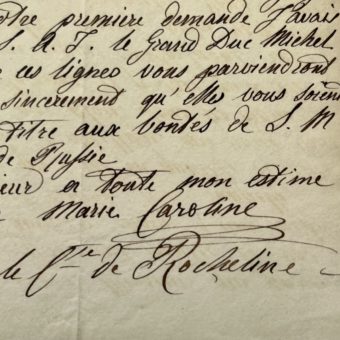 otre première demande j'avais
S. A. I. le Grand Duc Michel
e ces lignes vous parviendront
sincèrement qu'elles vous soient
titre aux bontés de S. M
de Russie
ieur en toute mon estime
Marie Caroline
le Cte de Rocheline